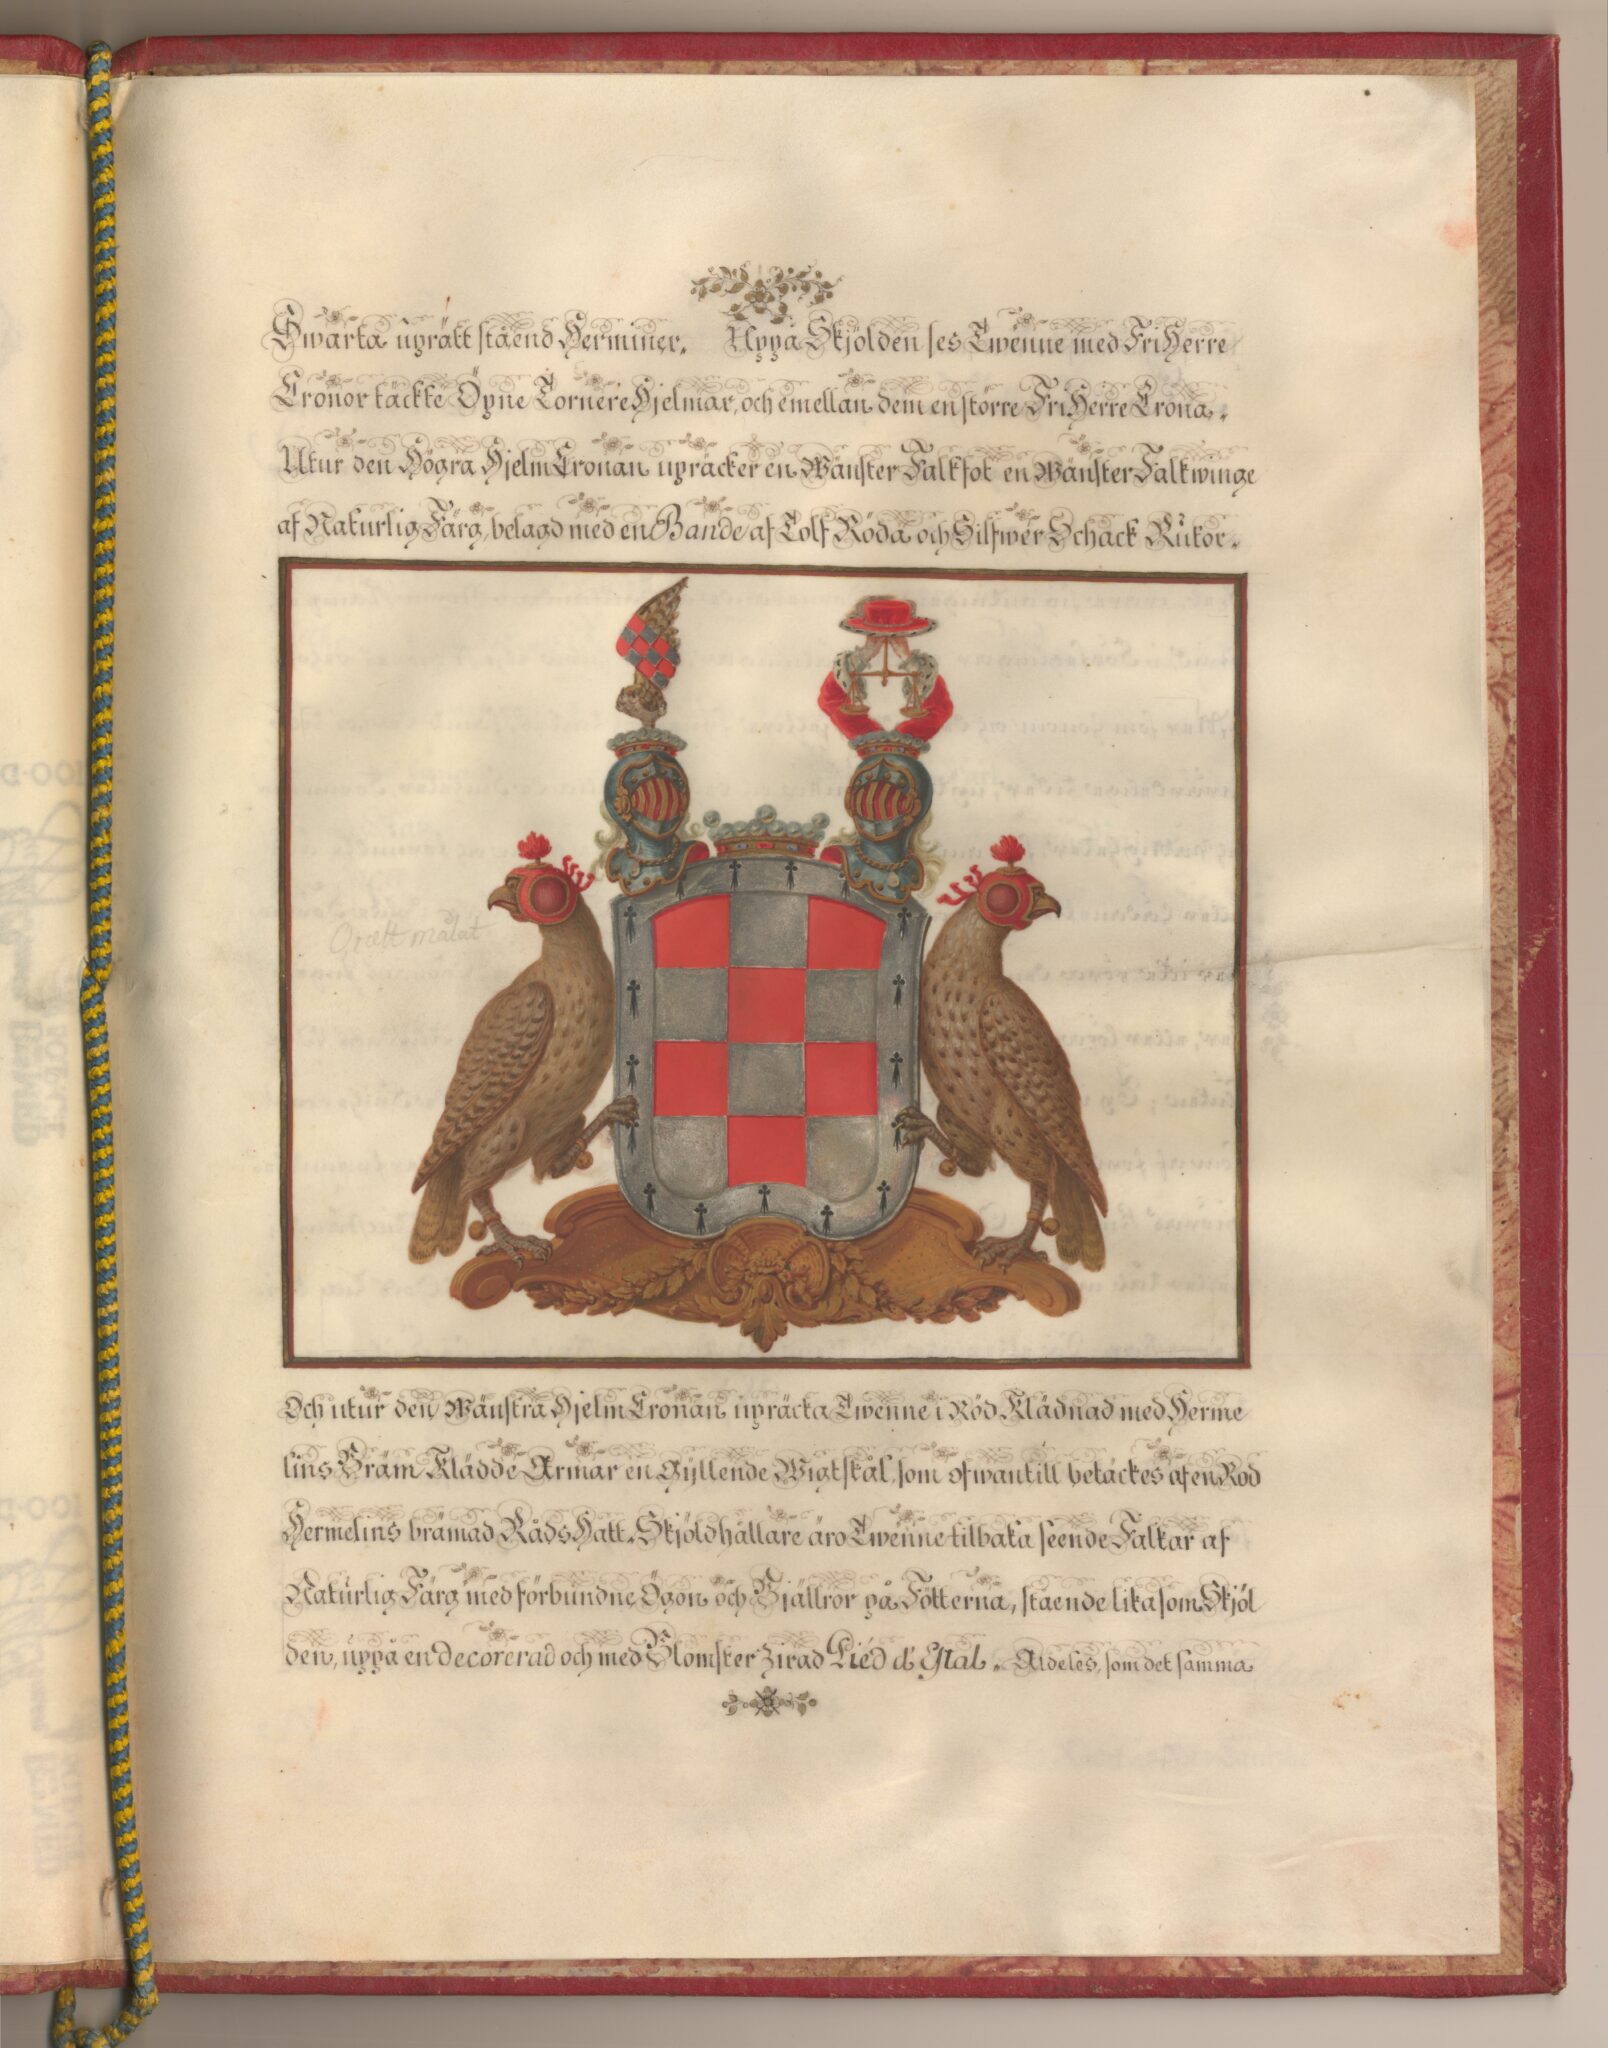 Swarta uprätt ståend Herminer. Uppå Skjölden ses Twenne med FriHerre
Cronor täckte Öpne TornereHjelmar, och emellan dem en större FriHerre Crona.
Utur den Högra HjelmCronan upräcker en Wänster Falkfot en Wänster Falkwinge
af Naturlig Färg, belagd med en Bande af Tolf Röda och Silfwer Schack Rutor.
Orätt målat
Och utur den Wänstra HjelmCronan upräcka Twenne i Röd Klädnad med Herme
lins Bräm Klädde Armar en Gyllende Wigtskål, som ofwantill betäckes af en Röd
Hermelins brämad RådsHatt. Skjöldhållare äro Twenne tilbaka seende Falkar af
Naturlig Färg med förbundne Ögon och Bjällror på Fötterna, staende lika som Skjöl
den, uppå en decorerad och med Blomster Zirad Pied d' Stal. Aldeles, som det samma